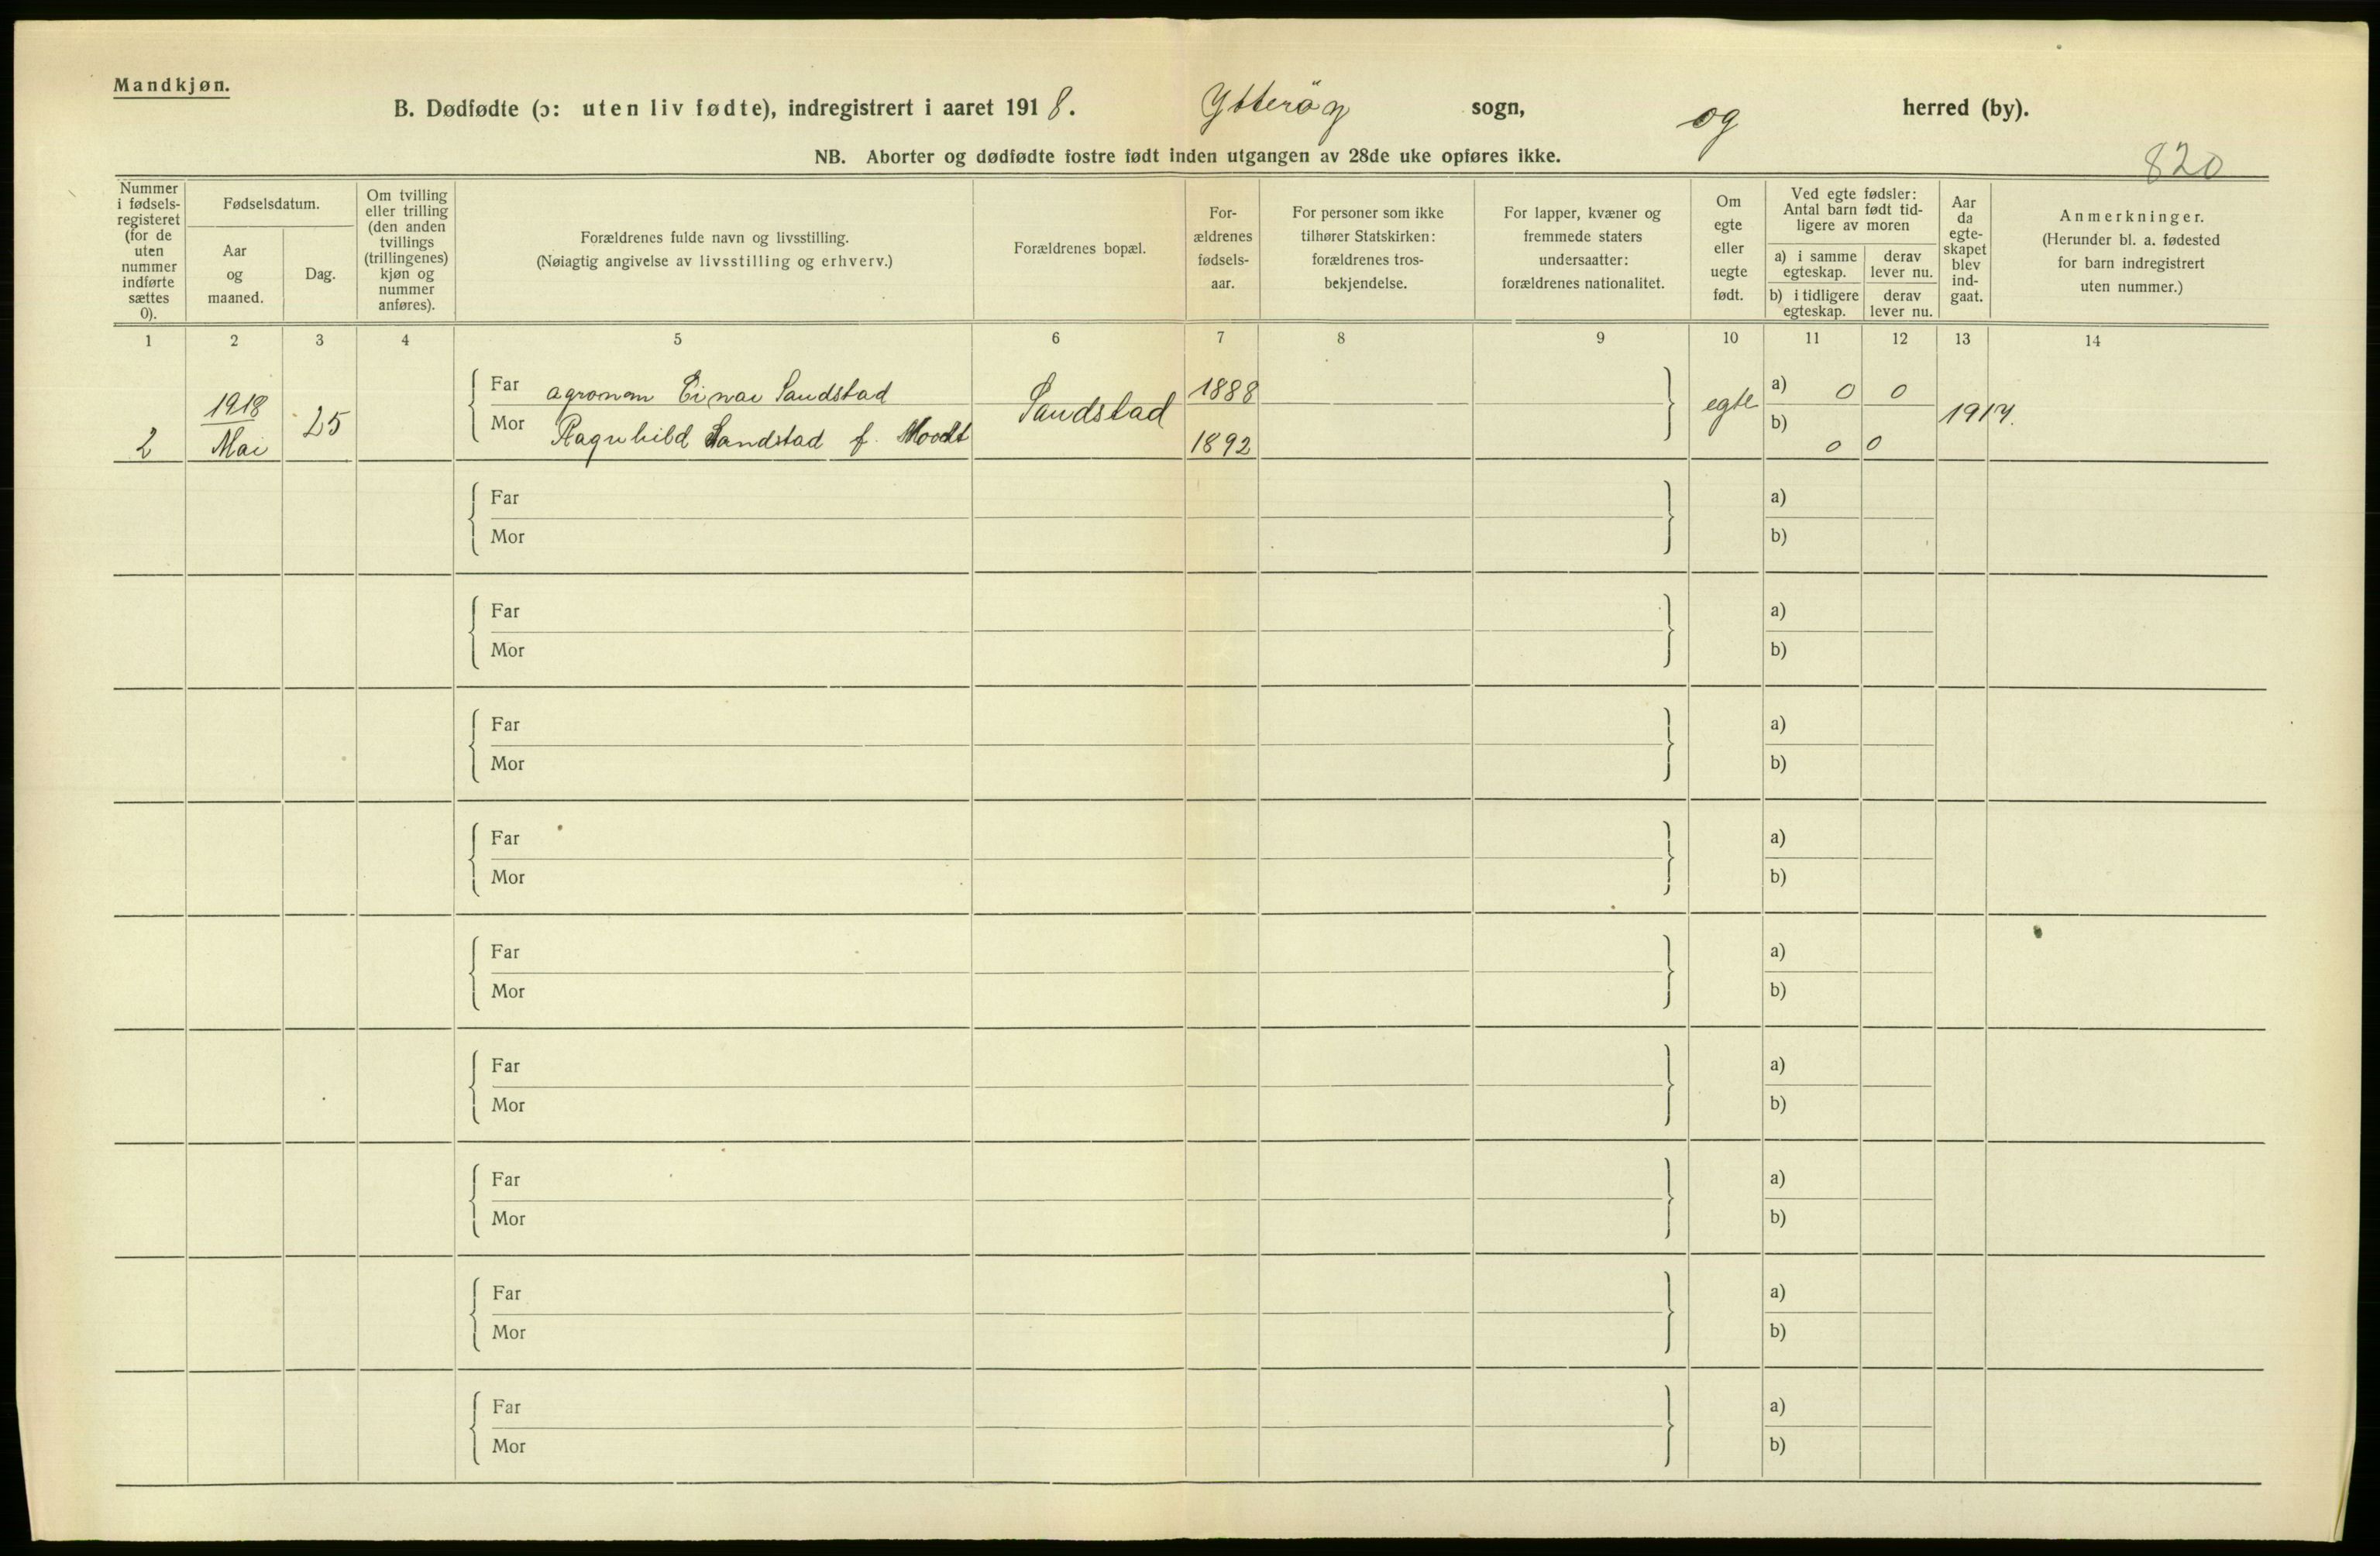 Mandkjøn.
B. Dødfødte (ɔ: uten liv fødte), indregistrert i aaret 1918. Ytterøy sogn, og herred (by).
NB. Aborter og dødfødte fostre født inden utgangen av 28de uke opføres ikke.
820
Nummer
i fødsels-
registeret
(for de
uten
nummer
indførte
sættes
0).
Fødselsdatum.
Aar
og
maaned.
Dag.
Om tvilling
eller trilling
(den anden
tvillings
(trillingenes)
kjøn og
nummer
anføres).
Forældrenes fulde navn og livsstilling.
(Nøiagtig angivelse av livsstilling og erhverv.)
Forældrenes bopæl.
For-
ældrenes
fødsels-
aar.
For personer som ikke
tilhører Statskirken:
forældrenes tros-
bekjendelse.
For lapper, kvæner og
fremmede staters
undersaatter:
forældrenes nationalitet.
Om
egte
eller
uegte
født.
Ved egte fødsler:
Antal barn født tid-
ligere av moren
a) i samme
egteskap.
derav
lever nu.
b) i tidligere
egteskap.
derav
lever nu.
Aar
da
egte-
skapet
blev
ind-
gaat.
Anmerkninger.
(Herunder bl. a. fødested
for barn indregistrert
uten nummer.)
1 2 3 4 5 6 7 8 9 10 11 12 13 14
2
1918
Mai
25
Far agronom Einar Sandstad
Mor Ragnhild Sandstad f.
Sandstad
1888
1892
egte
a) 0 0
b) 0 0
1917.
Far a)
Mor b)
Far a)
Mor b)
Far a)
Mor b)
Far a)
Mor b)
Far a)
Mor b)
Far a)
Mor b)
Far a)
Mor b)
Far a)
Mor b)
Far a)
Mor b)